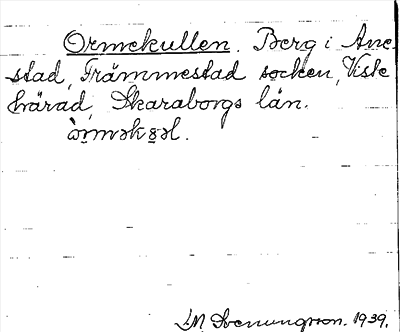 Ormekullen. Berg i Ane-
stad, Främmestad socken, Viste
härad, Skaraborgs län.
J.M. Svenungsson. 1939.